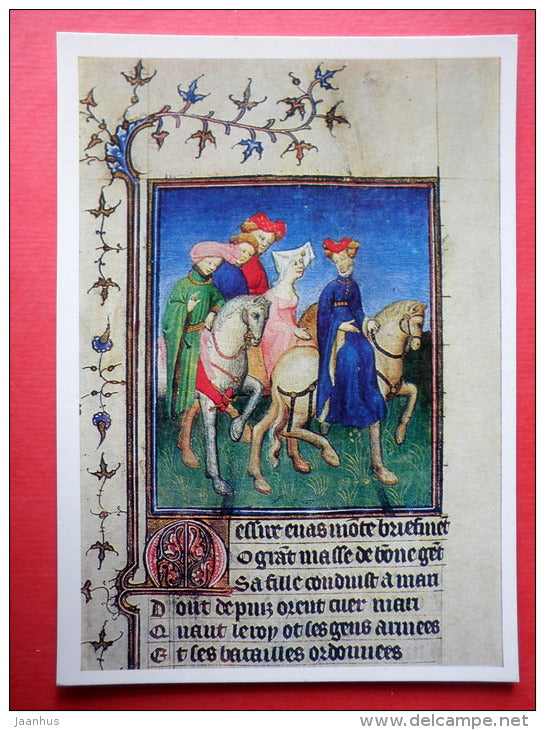 Messire enas mōte briefmēt
O grāt masse de bone gēt
Sa fille conduist a mari
Dont de puiz orent cuer mari
Quant le roy ot ses gens armees
Et ses batailles ordonnees
Jaanhus
www.delcampe.net